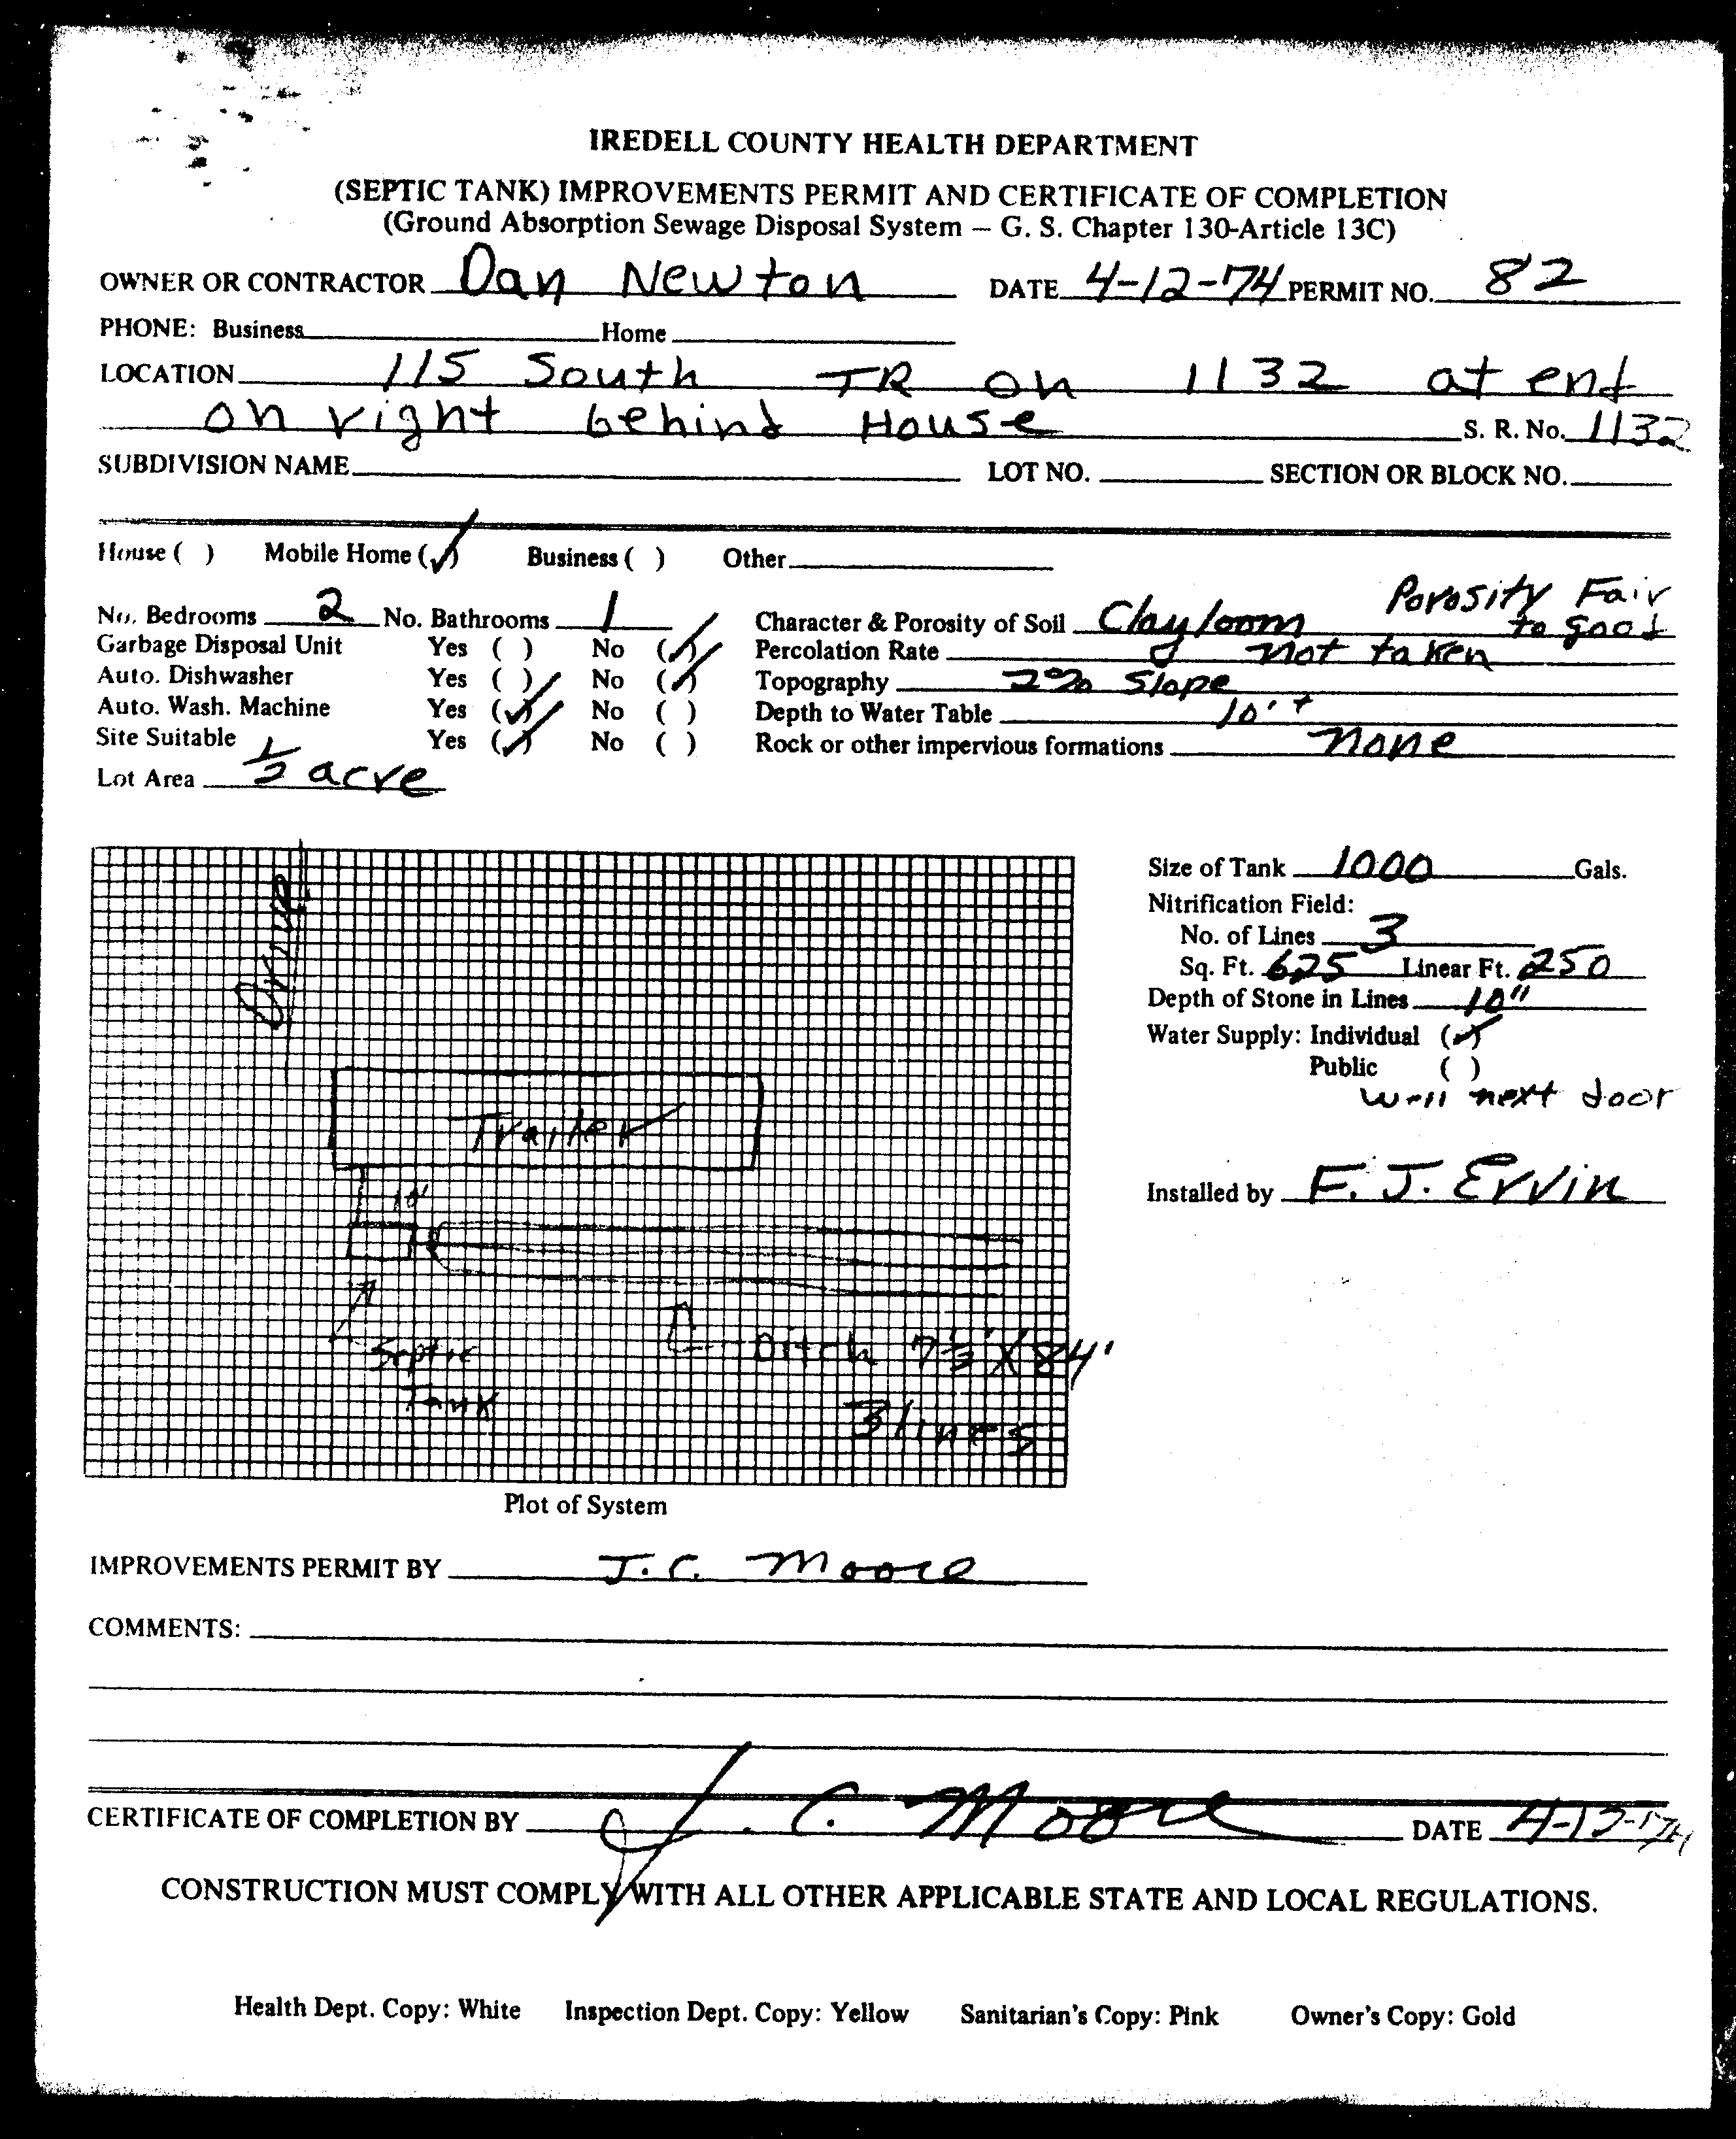 IREDELL COUNTY HEALTH DEPARTMENT
(SEPTIC TANK) IMPROVEMENTS PERMIT AND CERTIFICATE OF COMPLETION
(Ground Absorption Sewage Disposal System – G. S. Chapter 130-Article 13C)
OWNER OR CONTRACTOR Dan Newton DATE 4-12-74 PERMIT NO. 82
PHONE: Business Home
LOCATION 115 South TR on 1132 at end
on right behind House S. R. No. 1132
SUBDIVISION NAME LOT NO. SECTION OR BLOCK NO.
House ( ) Mobile Home (✓) Business ( ) Other
No. Bedrooms 2 No. Bathrooms 1 Character & Porosity of Soil Clayloom Porosity Fair to good
Garbage Disposal Unit Yes ( ) No (✓) Percolation Rate not taken
Auto. Dishwasher Yes ( ) No (✓) Topography 2% Slope
Auto. Wash. Machine Yes (✓) No ( ) Depth to Water Table 10'+
Site Suitable Yes (✓) No ( ) Rock or other impervious formations none
Lot Area 1/2 acre
Size of Tank 1000 Gals.
Nitrification Field:
No. of Lines 3
Sq. Ft. 625 Linear Ft. 250
Depth of Stone in Lines 10"
Water Supply: Individual (✓)
Public ( )
Well next door
Installed by F. J. Ervin
Drive
Trailer
10'
Septic
Tank
Ditch 7 1/2' X 84'
3 lines
Plot of System
IMPROVEMENTS PERMIT BY J. C. Moore
COMMENTS:
CERTIFICATE OF COMPLETION BY J. C. Moore DATE
CONSTRUCTION MUST COMPLY WITH ALL OTHER APPLICABLE STATE AND LOCAL REGULATIONS.
Health Dept. Copy: White Inspection Dept. Copy: Yellow Sanitarian's Copy: Pink Owner's Copy: Gold